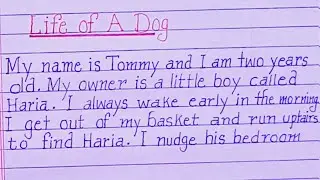 Life of A Dog
My name is Tommy and I am two years
old. My owner is a little boy called
Haria. I always wake early in the morning
I get out of my basket and run uptairs
to find Haria. I nudge his bedroom